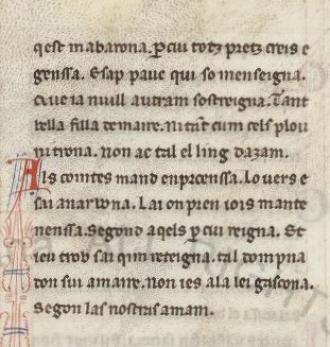 qest mabarona. ꝑ cui totz pretz creis e
genssa. E sap pauc qui so menseigna.
Cue ia nuill autram sostreigna. Tant
bella filla de maire. Ni tant cum cels plou
ni trona. non ac tal el ling dazam.
Als comtes mand en proenssa. lo uers e
sai a narbona. Lai on pren iois mante
nenssa. Segond aqels ꝑ cui reigna. Et
ieu trob sai qim reteigna. tal dompna
don sui amaire. non ies a la lei gascona.
Segon las nostras amam.